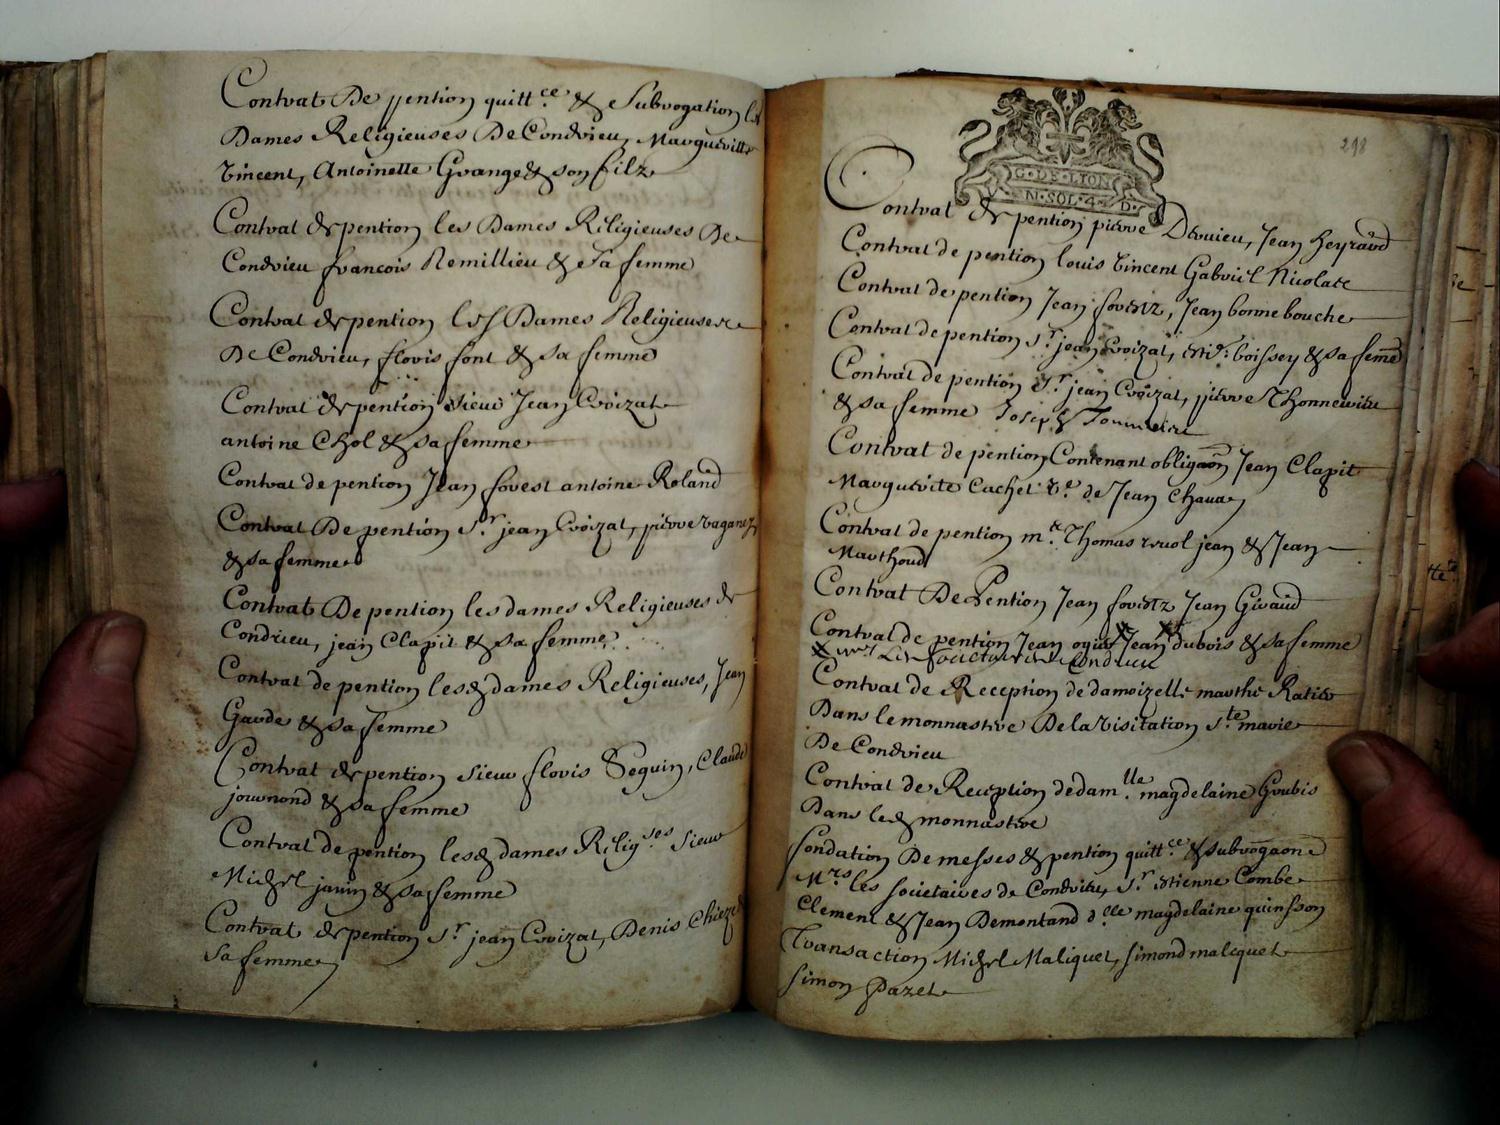 Contrat De pention quitt.ce & Subrogation les
Dames Religieuses De Condrieu, Margueritte
vincent, Antoinette Grange & son filz
Contrat de pention les Dames Religieuses De
Condrieu francois Remillieu & Sa femme
Contrat de pention les Dames Religieuses
De Condrieu, floris font & sa femme
Contrat de pention sieur Jean Croizat
antoine Chol & sa femme
Contrat de pention Jean forest antoine Roland
Contrat De pention Sr. jean Croizat, pierre vaganez
& sa femme
Contrat De pention les dames Religieuses de
Condrieu, jean Clapit & sa femme
Contrat de pention lesd dames Religieuses, Jean
Garde & sa femme
Contrat de pention sieur floris Seguin, Claude
journond & sa femme
Contrat de pention lesd dames Religses Sieur
Michel janin & sa femme
Contrat de pention Sr jean Croizat, Denis Chieze &
Sa femme
298
G. DE LION
N. SOL. 4. D.
Contrat de pention pierre Drevieu, Jean heyraud
Contrat de pention louis vincent Gabriel Nicolate
Contrat de pention Jean forestz, Jean bonnebouche
Contrat de pention Sr jean Croizat, boissey & sa femē
Contrat de pention Sr jean Croizat, pierre Thonnerieu
& sa femme Joseph
Contrat de pention Contenant obligaōn Jean Clapit
Marguerite Cachet ve. de Jean Chava
Contrat de pention me. Thomas revol jean & Jean
Marthoud
Contrat De Pention Jean forestz Jean Giraud
Contrat de pention Jean ogier Jean dubois & sa femme
x Les Societaires de Condrieu
Contrat de Reception de damoizelle marthe Ratier
Dans le monnastere De la visitation Ste marie
De Condrieu
Contrat de Reception de damlle. magdelaine Goubis
Dans led monnastere
fondation De messes & pention quitt.ce & subrogaōn
Mrs les societaires de Condrieu, Sr. Estienne Combe
Clement & Jean Demontand dlle magdelaine quinsson
Transaction Michel Maliquet, simond malcquet
simon Pazet